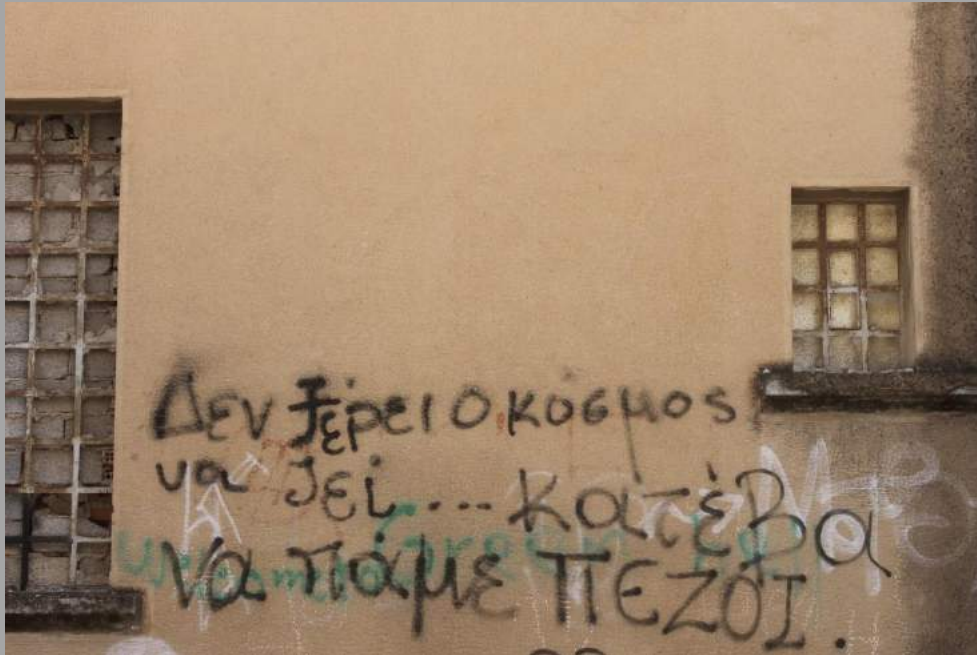 Δεν ξέρει ο κόσμος
να ζει.... κατέβα
Να πάμε ΠΕΖΟΙ.